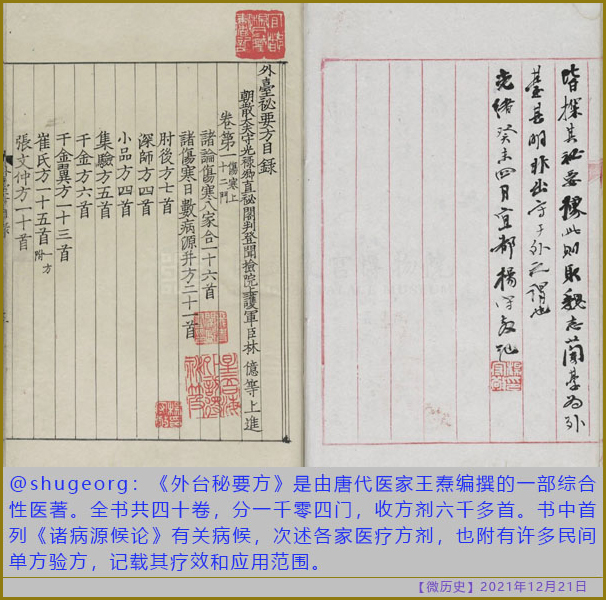 皆探其秘要據此則取魏志蘭臺為外
臺甚明非出守于外之謂也
光緒癸未四月宜都楊守敬記
外臺祕要方目錄
朝散大夫守光祿卿直祕閣判登聞檢院上護軍臣林 億等上進
卷第一 傷寒上 十二門
諸論傷寒八家合一十六首
諸傷寒日數病源并方二十一首
肘後方七首
深師方四首
小品方四首
集驗方五首
千金方六首
千金翼方一十三首
崔氏方一十五首 附一方
張文仲方一十首
@shugeorg：《外台秘要方》是由唐代医家王焘编撰的一部综合
性医著。全书共四十卷，分一千零四门，收方剂六千多首。书中首
列《诸病源候论》有关病候，次述各家医疗方剂，也附有许多民间
单方验方，记载其疗效和应用范围。
【微历史】2021年12月21日